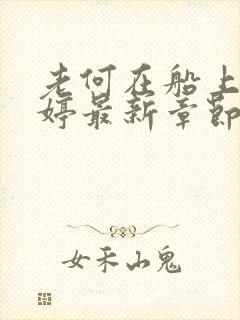 老何在船上
婷最新章节
女禾山鬼